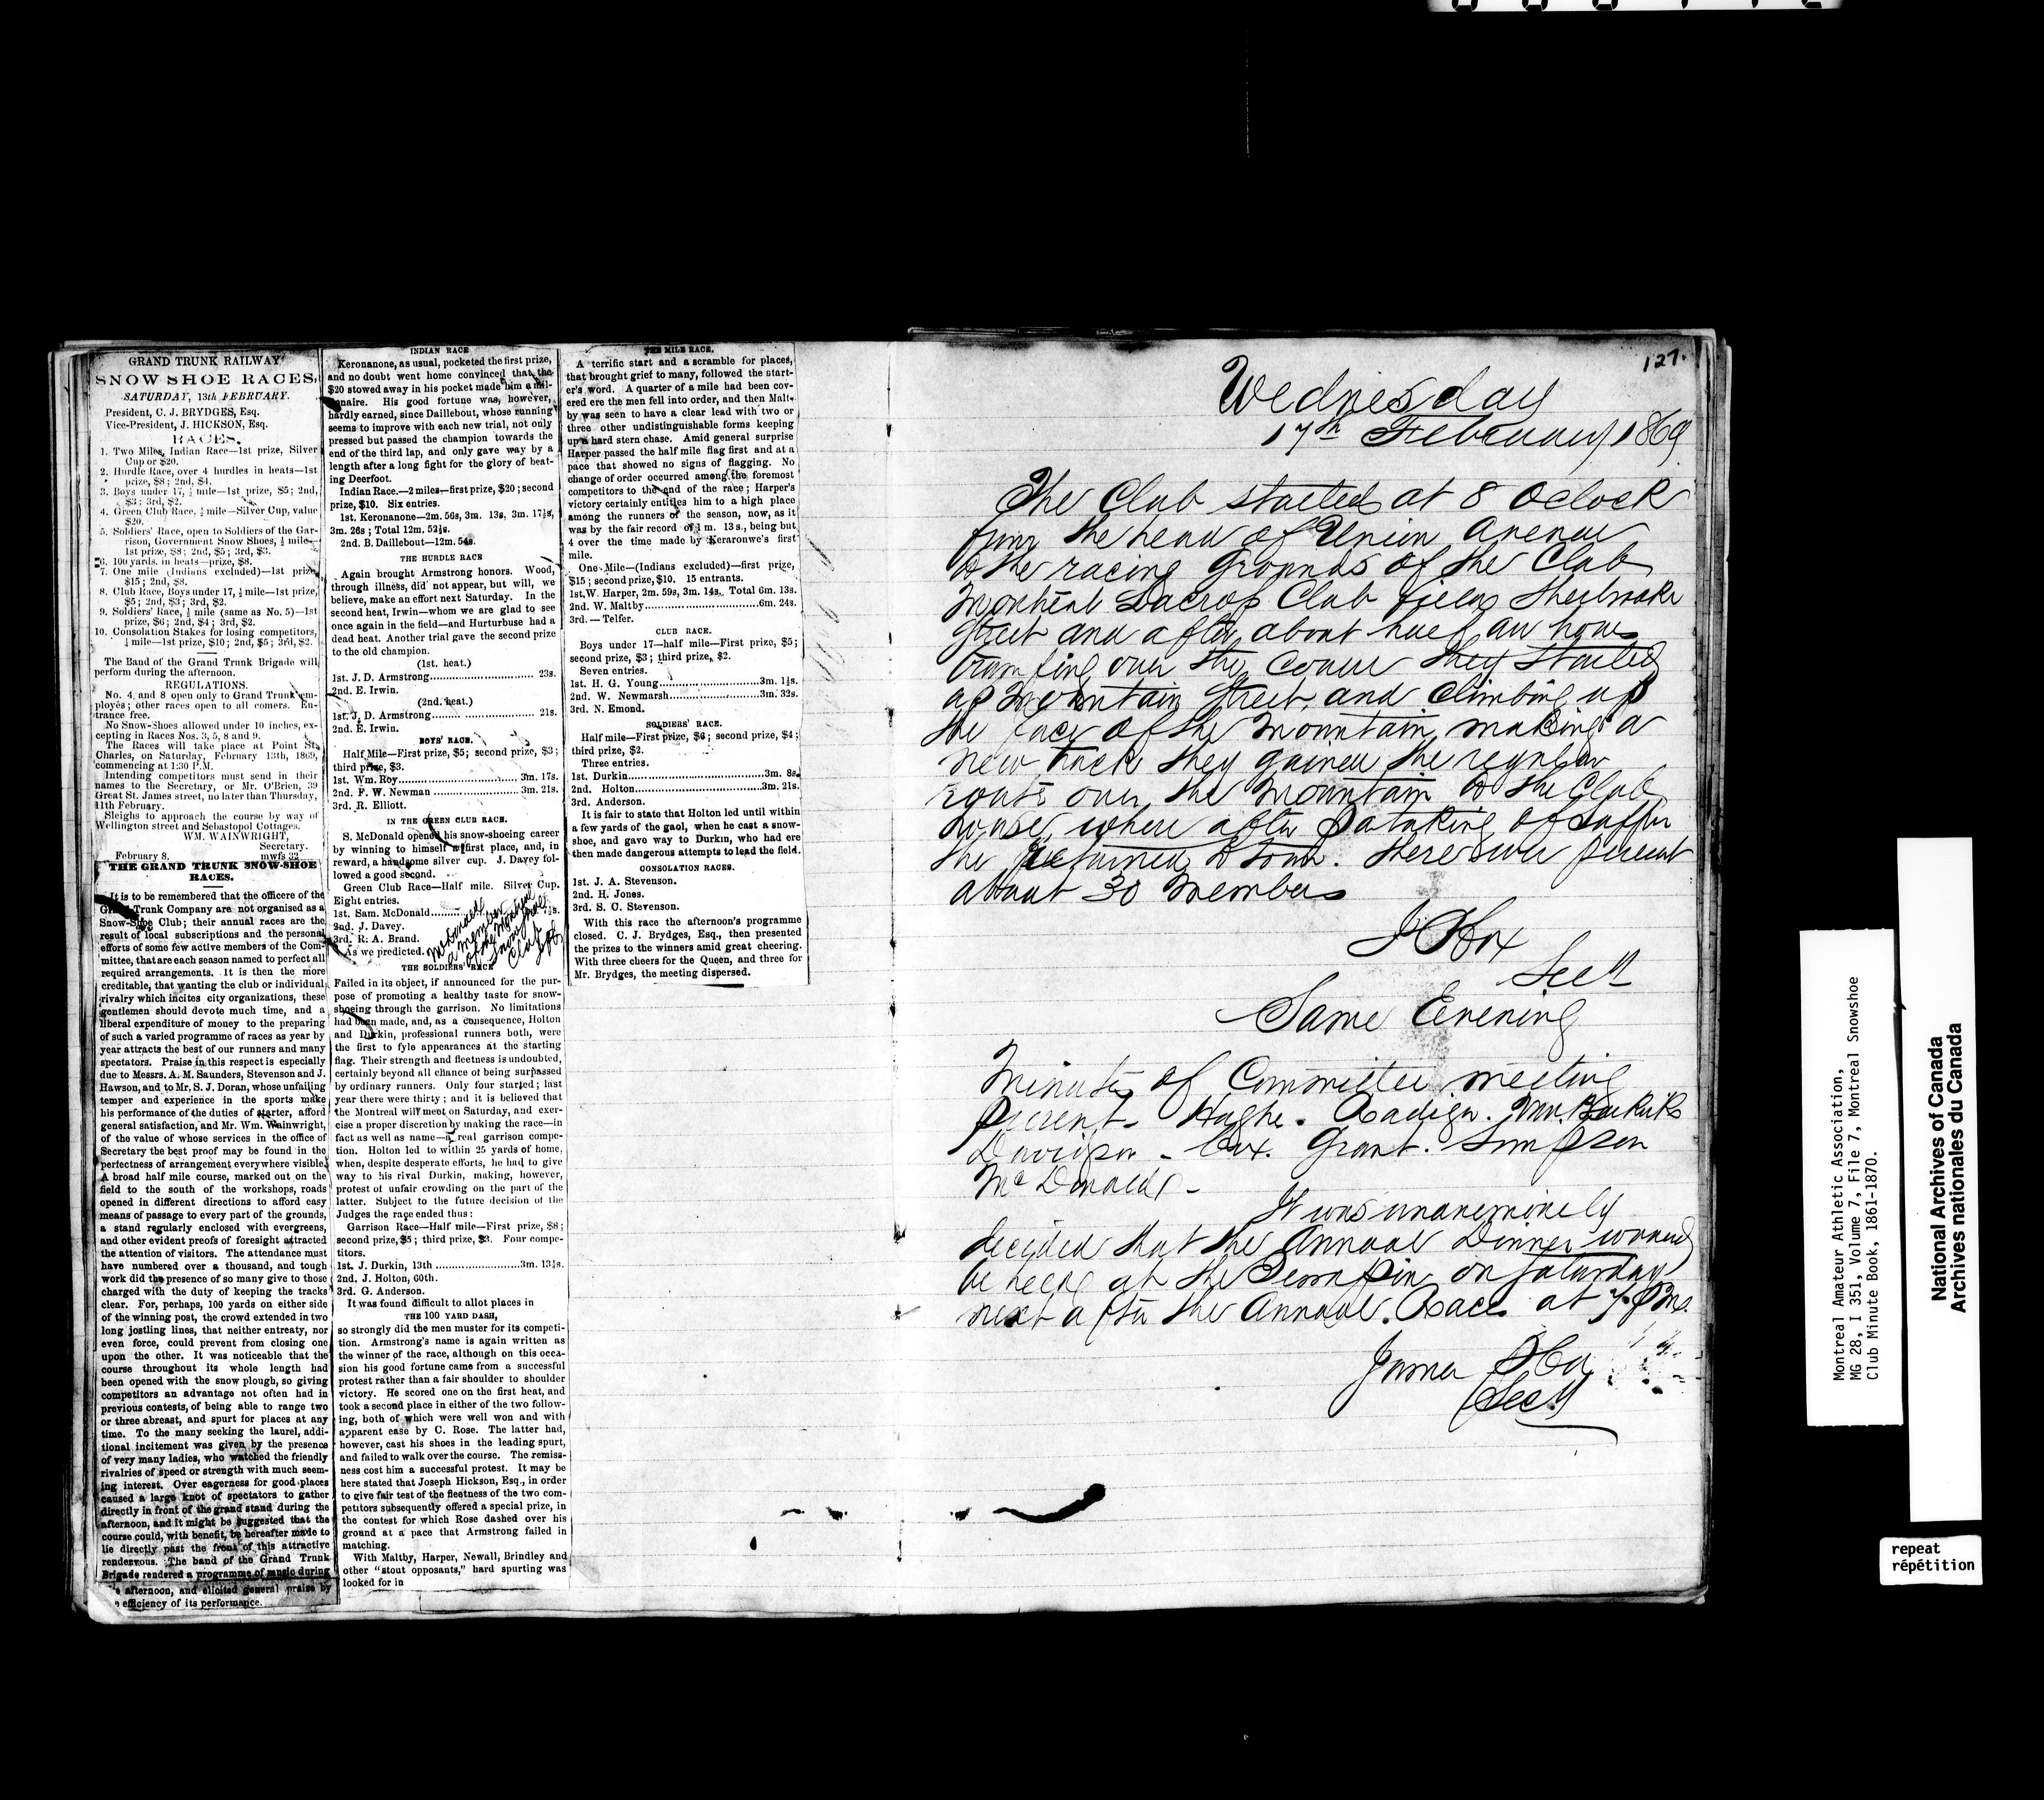 GRAND TRUNK RAILWAY
SNOW SHOE RACES,
SATURDAY, 13th FEBRUARY.
President, C. J. BRYDGES, Esq.
Vice-President, J. HICKSON, Esq.
RACES.
1. Two Miles, Indian Race—1st prize, Silver
Cup or $20.
2. Hurdle Race, over 4 hurdles in heats—1st
prize, $8; 2nd, $4.
3. Boys under 17, ½ mile—1st prize, $5; 2nd,
$3; 3rd, $2.
4. Green Club Race, ½ mile—Silver Cup, value
$20.
5. Soldiers' Race, open to Soldiers of the Gar-
rison, Government Snow Shoes, ½ mile—
1st prize, $8; 2nd, $5; 3rd, $3.
6. 100 yards, in heats—prize, $8.
7. One mile (Indians excluded)—1st prize
$15; 2nd, $8.
8. Club Race, Boys under 17, ½ mile—1st prize,
$5; 2nd, $3; 3rd, $2.
9. Soldiers' Race, ½ mile (same as No. 5)—1st
prize, $6; 2nd, $4; 3rd, $2.
10. Consolation Stakes for losing competitors,
½ mile—1st prize, $10; 2nd, $5; 3rd, $2.
The Band of the Grand Trunk Brigade will
perform during the afternoon.
REGULATIONS.
No. 4, and 8 open only to Grand Trunk em-
ployés; other races open to all comers. En-
trance free.
No Snow-Shoes allowed under 10 inches, ex-
cepting in Races Nos. 3, 5, 8 and 9.
The Races will take place at Point St.
Charles, on Saturday, February 13th, 1869,
commencing at 1:30 P.M.
Intending competitors must send in their
names to the Secretary, or Mr. O'Brien, 39
Great St. James street, no later than Thursday,
11th February.
Sleighs to approach the course by way of
Wellington street and Sebastopol Cottages.
WM. WAINWRIGHT,
Secretary.
February 8. mwfs 32
THE GRAND TRUNK SNOW-SHOE
RACES.
It is to be remembered that the officere of the
Grand Trunk Company are not organised as a
Snow-Shoe Club; their annual races are the
result of local subscriptions and the personal
efforts of some few active members of the Com-
mittee, that are each season named to perfect all
required arrangements. It is then the more
creditable, that wanting the club or individual
rivalry which incites city organizations, these
gentlemen should devote much time, and a
liberal expenditure of money to the preparing
of such a varied programme of races as year by
year attracts the best of our runners and many
spectators. Praise in this respect is especially
due to Messrs. A. M. Saunders, Stevenson and J.
Hawson, and to Mr. S. J. Doran, whose unfailing
temper and experience in the sports make
his performance of the duties of starter, afford
general satisfaction, and Mr. Wm. Wainwright,
of the value of whose services in the office of
Secretary the best proof may be found in the
perfectness of arrangement everywhere visible.
A broad half mile course, marked out on the
field to the south of the workshops, roads
opened in different directions to afford easy
means of passage to every part of the grounds,
a stand regularly enclosed with evergreens,
and other evident preofs of foresight attracted
the attention of visitors. The attendance must
have numbered over a thousand, and tough
work did the presence of so many give to those
charged with the duty of keeping the tracks
clear. For, perhaps, 100 yards on either side
of the winning post, the crowd extended in two
long jostling lines, that neither entreaty, nor
even force, could prevent from closing one
upon the other. It was noticeable that the
course throughout its whole length had
been opened with the snow plough, so giving
competitors an advantage not often had in
previous contests, of being able to range two
or three abreast, and spurt for places at any
time. To the many seeking the laurel, addi-
tional incitement was given by the presence
of very many ladies, who watched the friendly
rivalries of speed or strength with much seem-
ing interest. Over eagerness for good places
caused a large knot of spectators to gather
directly in front of the grand stand during the
afternoon, and it might be suggested that the
course could, with benefit, be hereafter made to
lie directly past the front of this attractive
rendezvous. The band of the Grand Trunk
Brigade rendered a programme of music during
afternoon, and elicited general praise by
efficiency of its performance.
INDIAN RACE
Keronanone, as usual, pocketed the first prize,
and no doubt went home convinced that the
$20 stowed away in his pocket made him a mil-
lionaire. His good fortune was, however,
hardly earned, since Daillebout, whose running
seems to improve with each new trial, not only
pressed but passed the champion towards the
end of the third lap, and only gave way by a
length after a long fight for the glory of beat-
ing Deerfoot.
Indian Race.—2 miles—first prize, $20; second
prize, $10. Six entries.
1st. Keronanone—2m. 56s, 3m. 13s, 3m. 17½s,
3m. 26s; Total 12m. 52½s.
2nd. B. Daillebout—12m. 54s.
THE HURDLE RACE
Again brought Armstrong honors. Wood,
through illness, did not appear, but will, we
believe, make an effort next Saturday. In the
second heat, Irwin—whom we are glad to see
once again in the field—and Hurturbuse had a
dead heat. Another trial gave the second prize
to the old champion.
(1st. heat.)
1st. J. D. Armstrong............ 23s.
2nd. E. Irwin.
(2nd. heat.)
1st. J. D. Armstrong............ 21s.
2nd. E. Irwin.
BOYS' RACE.
Half Mile—First prize, $5; second prize, $3;
third prize, $3.
1st. Wm. Roy............ 3m. 17s.
2nd. F. W. Newman............ 3m. 21s.
3rd. R. Elliott.
IN THE GREEN CLUB RACE.
S. McDonald opened his snow-shoeing career
by winning to himself a first place, and, in
reward, a handsome silver cup. J. Davey fol-
lowed a good second.
Green Club Race—Half mile. Silver Cup.
Eight entries.
1st. Sam. McDonald
2nd. J. Davey.
3rd. R. A. Brand.
As we predicted.
McDonald
a member
of the Montreal
Snow Shoe
Club
THE SOLDIERS' RACE
Failed in its object, if announced for the pur-
pose of promoting a healthy taste for snow-
shoeing through the garrison. No limitations
had been made, and, as a consequence, Holton
and Durkin, professional runners both, were
the first to fyle appearances at the starting
flag. Their strength and fleetness is undoubted,
certainly beyond all chance of being surpassed
by ordinary runners. Only four started; last
year there were thirty; and it is believed that
the Montreal will meet on Saturday, and exer-
cise a proper discretion by making the race—in
fact as well as name—a real garrison compe-
tion. Holton led to within 25 yards of home,
when, despite desperate efforts, he had to give
way to his rival Durkin, making, however,
protest of unfair crowding on the part of the
latter. Subject to the future decision of the
Judges the race ended thus:
Garrison Race—Half mile—First prize, $8;
second prize, $5; third prize, $3. Four compe-
titors.
1st. J. Durkin, 13th............ 3m. 13½s.
2nd. J. Holton, 60th.
3rd. G. Anderson.
It was found difficult to allot places in
THE 100 YARD DASH,
so strongly did the men muster for its competi-
tion. Armstrong's name is again written as
the winner of the race, although on this occa-
sion his good fortune came from a successful
protest rather than a fair shoulder to shoulder
victory. He scored one on the first heat, and
took a second place in either of the two follow-
ing, both of which were well won and with
apparent ease by C. Rose. The latter had,
however, cast his shoes in the leading spurt,
and failed to walk over the course. The remiss-
ness cost him a successful protest. It may be
here stated that Joseph Hickson, Esq., in order
to give fair test of the fleetness of the two com-
petitors subsequently offered a special prize, in
the contest for which Rose dashed over his
ground at a pace that Armstrong failed in
matching.
With Maltby, Harper, Newall, Brindley and
other "stout opposants," hard spurting was
looked for in
THE MILE RACE.
A terrific start and a scramble for places,
that brought grief to many, followed the start-
er's word. A quarter of a mile had been cov-
ered ere the men fell into order, and then Malt-
by was seen to have a clear lead with two or
three other undistinguishable forms keeping
up a hard stern chase. Amid general surprise
Harper passed the half mile flag first and at a
pace that showed no signs of flagging. No
change of order occurred among the foremost
competitors to the end of the race; Harper's
victory certainly entitles him to a high place
among the runners of the season, now, as it
was by the fair record of m. 13s., being but
4 over the time made by Keraronwe's first
mile.
One Mile—(Indians excluded)—first prize,
$15; second prize, $10. 15 entrants.
1st, W. Harper, 2m. 59s, 3m. 14s. Total 6m. 13s.
2nd. W. Maltby............ 6m. 24s.
3rd. — Telfer.
CLUB RACE.
Boys under 17—half mile—First prize, $5;
second prize, $3; third prize, $2.
Seven entries.
1st. H. G. Young............ 3m. 1½s.
2nd. W. Newmarsh............ 3m. 32s.
3rd. N. Emond.
SOLDIERS' RACE.
Half mile—First prize, $6; second prize, $4;
third prize, $2.
Three entries.
1st. Durkin............ 3m. 8s.
2nd. Holton............ 3m. 21s.
3rd. Anderson.
It is fair to state that Holton led until within
a few yards of the gaol, when he cast a snow-
shoe, and gave way to Durkin, who had ere
then made dangerous attempts to lead the field.
CONSOLATION RACES.
1st. J. A. Stevenson.
2nd. H. Jones.
3rd. S. C. Stevenson.
With this race the afternoon's programme
closed. C. J. Brydges, Esq., then presented
the prizes to the winners amid great cheering.
With three cheers for the Queen, and three for
Mr. Brydges, the meeting dispersed.
127.
Wednesday
17th February 1869
The Club started at 8 Oclock
from the head of Union Avenue
to the racing grounds of the Club
Montreal Lacross Club field Sherbrooke
Street and after about half an hour
tramping over the course they started
up Mountain Street, and climbing up
the face of the Mountain, making a
new track they gained the regular
route over the Mountain to the Club
house, where after partaking of supper
the returned to town. There were present
about 30 Members
Secy
Same Evening
Minutes of Committee meeting
present. Hughe. Radiger.
Davison - Cox. Grant. Simpson
McDonald -
It was unanemously
decided that the Annual Dinner would
be held at the Terrapin on Saturday
next after the Annual. Races at 7. Pm.
James Cox
Secy
Montreal Amateur Athletic Association,
MG 28, I 351, Volume 7, File 7, Montreal Snowshoe
Club Minute Book, 1861-1870.
National Archives of Canada
Archives nationales du Canada
repeat
répétition